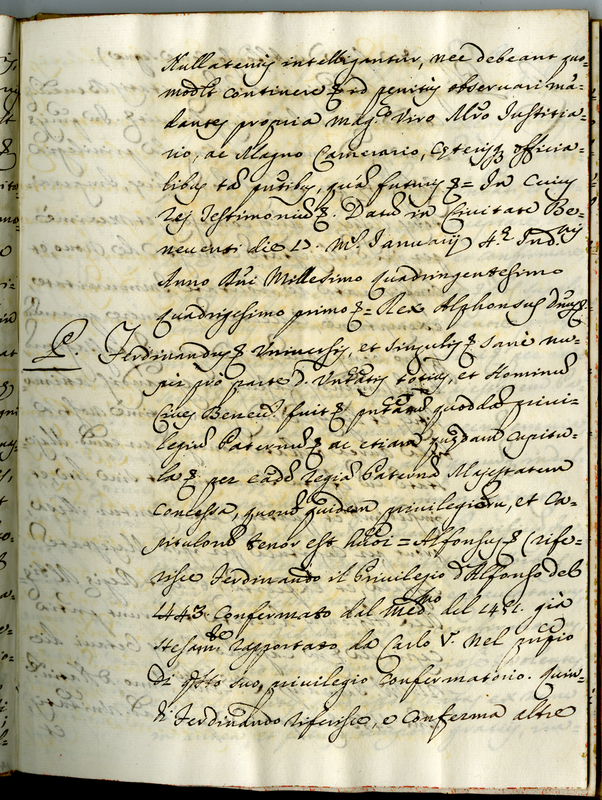 Nullatenus intelligantur, nec debeant quo=
modolt continere &rd penitus observari mã=
dantes propria mag:co Viro Mro Iustitia=
rio, ac Magno Camerario, Ceterisq3 officia=
libus tã pntibus, quã futuris &= In Cuius
Rei Testimoniũ &. Datũ in Civitate Be=
neventi die Ms. Ianuarij 4.e Ind:nis
Anno Dñi Millesimo quadringentesimo
quadragesimo primo &= Rex Alphonsus
P. Ferdinandus & Universis, et singulis & Sanè nu=
per pró parte Unitatis totius, et Hominũ
Civiũ Beneũ. fuit & pntatũ quoddã privi=
legiũ Paternũ & ac etiam quædam Capitu=
la & per eãd Regiã Paternã Majestatem
Concessa, quorũ quidem privilegiorũ, et Ca=
pitulorũ tenor est = Alfonsus & (rife=
risce Ferdinando il Privilegio d'Alfonso del
443. Confermato dal med:mo del 1451. già
rapportato da Carlo V. nel prñpio
di qsto suo, privilegio Confermatorio. Quin=
di Ferdinando riferisce, e Conferma altre